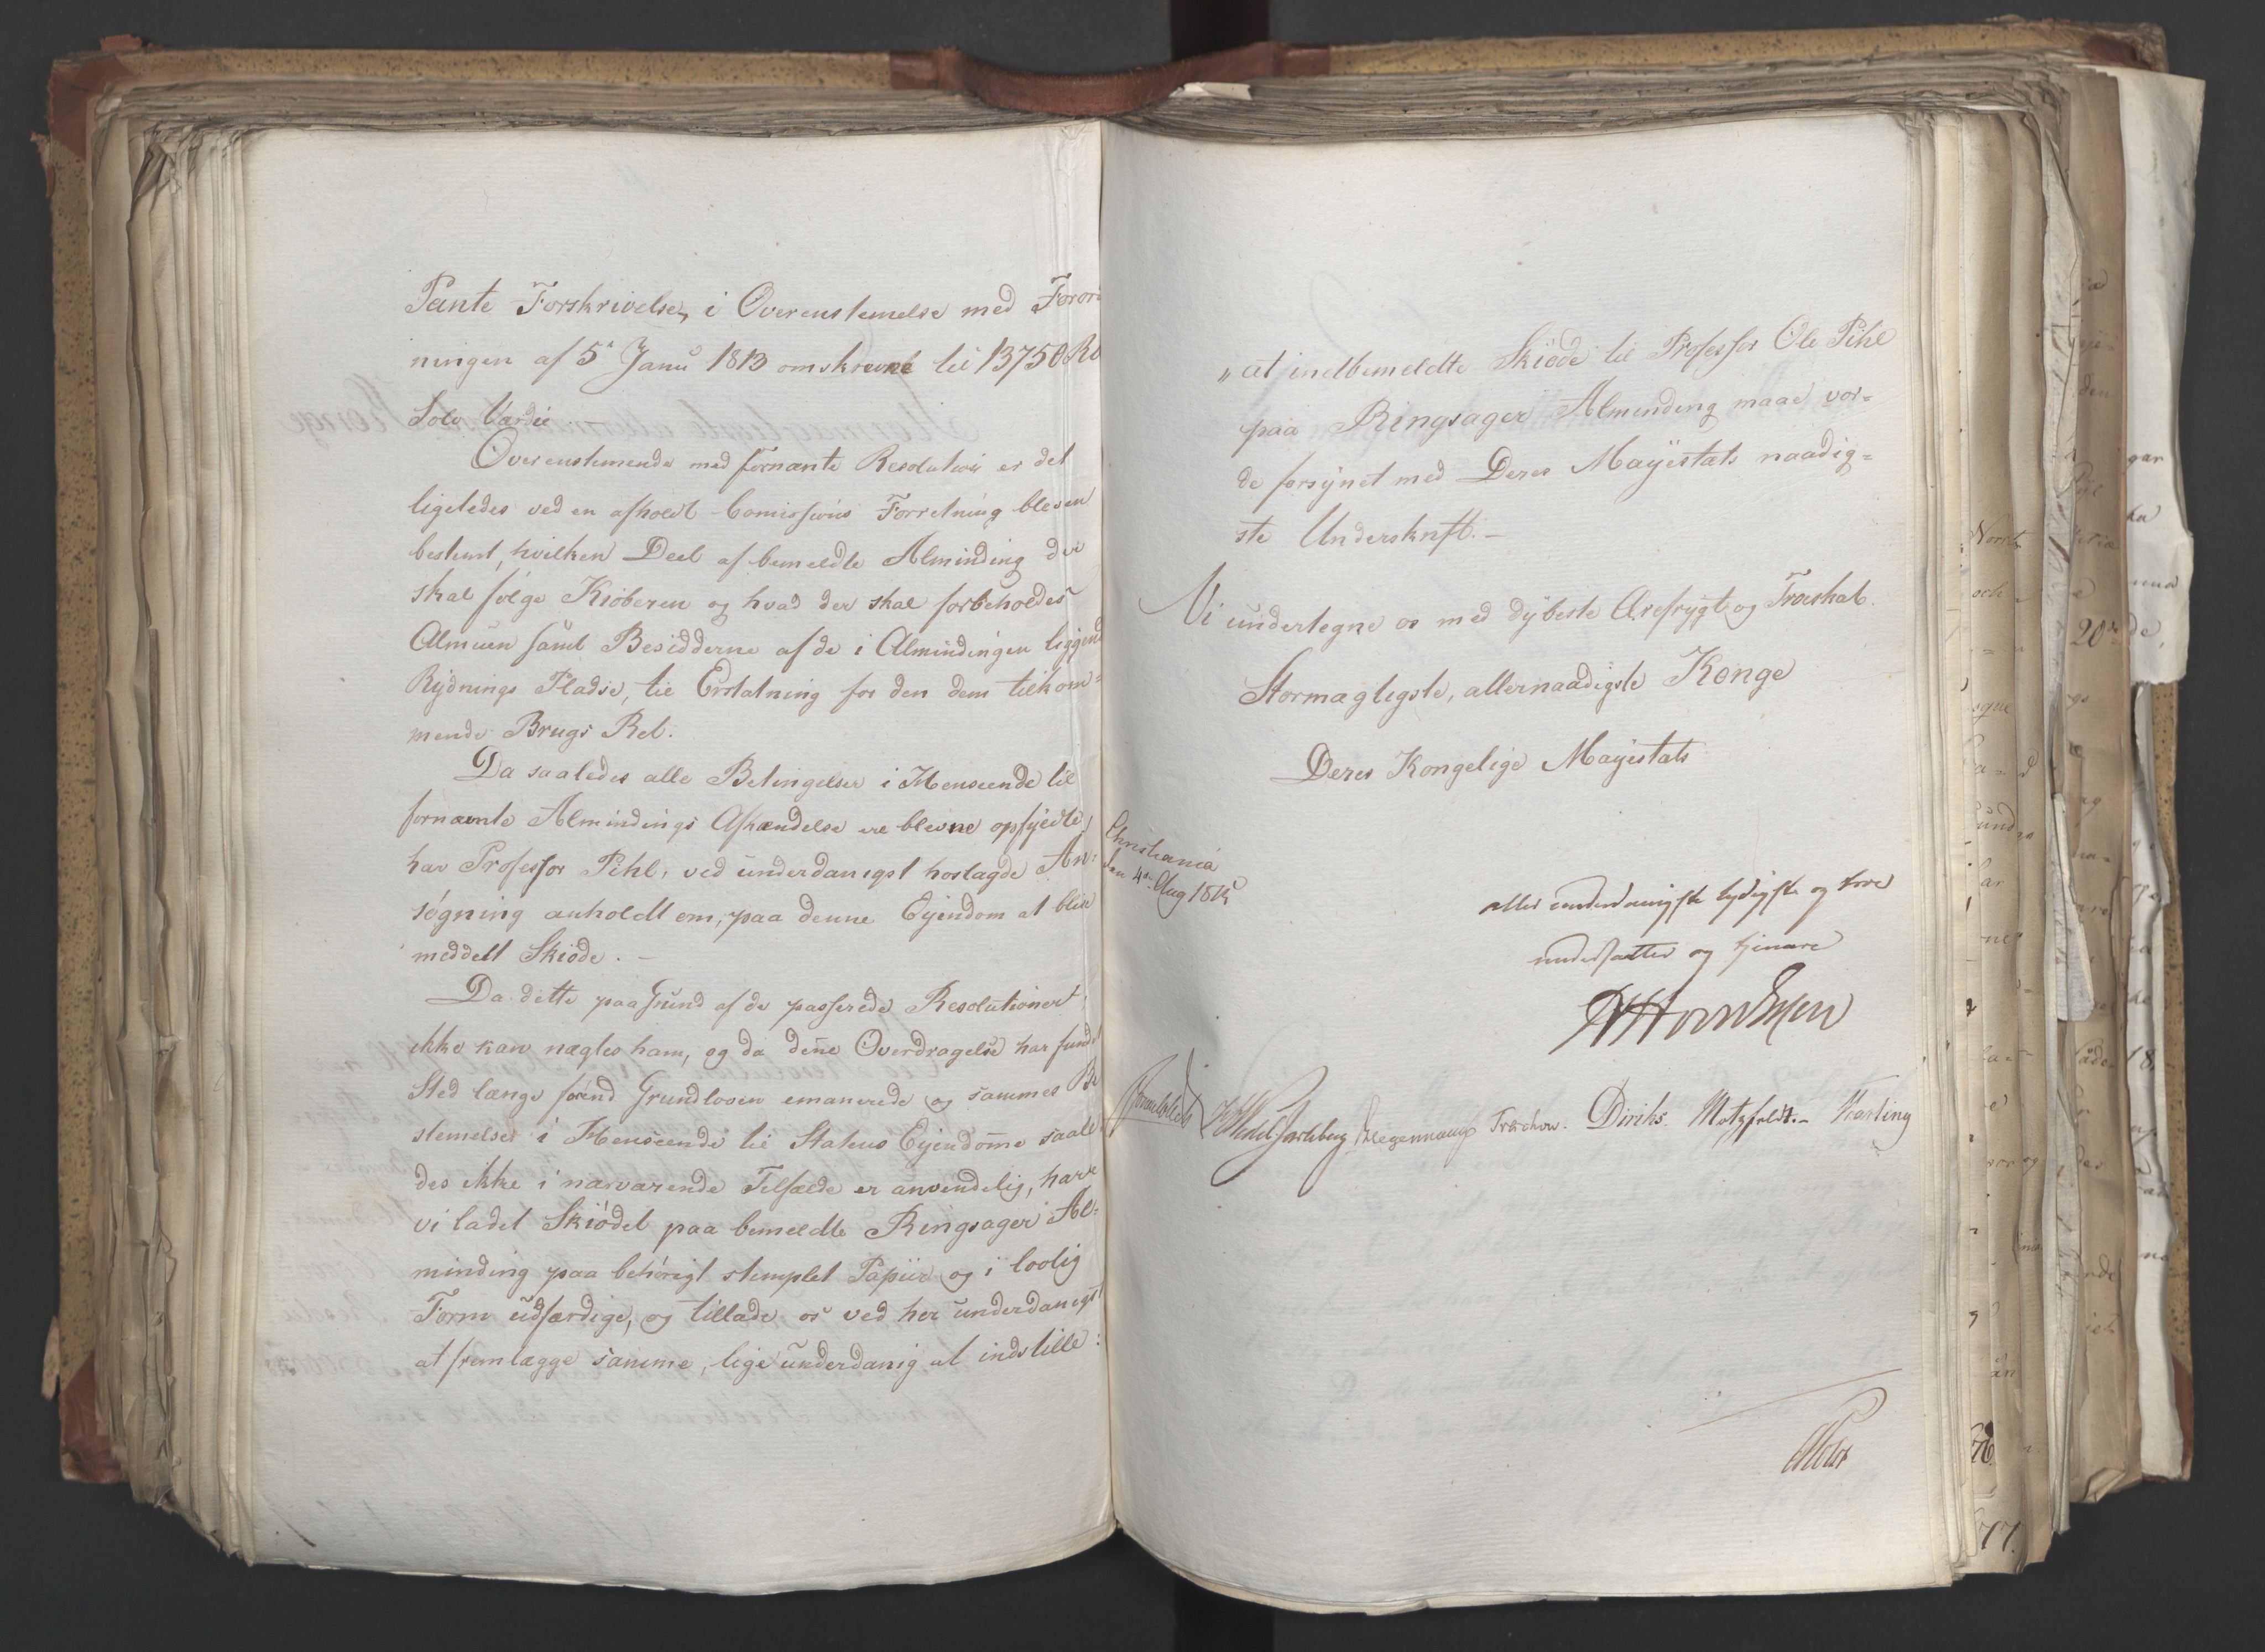 Pante Forskrivelse, i Overenstemelse med Foror
ningen af 5te Janu 1813 omskrevne til 13750 Rb
Sølv Værdie
Overenstemende med fornænte Resolution er det
ligeledes ved en afholdt Comissions Forretning bleven
bestemt, hvilken Deel af bemeldte Alminding der
skal følge Kiøberen og hvad der skal forbeholdes
Almuen samt Besidderne af de i Almindingen liggend
Rydnings Pladse, til Erstatning for den dem tilkom=
mende Brugs Ret.
Da saaledes alle Betingelser i Henseende til
fornævnte Almindings Afhændelse ere blevne opfyldte,
har Professor Pihl, ved underdanigst hoslagde An=
søgning anholdt om, paa denne Eyendom at blive
meddelt Skiøde. -
Da dette paa Grund af de passerede Resolutioner
ikke kan nægtes ham, og da denne Overdragelse har fundet
Sted længe førend Grundloven emanerede og sammes Be
stemelser i Henseende til Statens Eyendomme saale
des ikke i nærværende Tilfælde er anvendelig, have
vi ladet Skiødet paa bemeldte Ringsager Al=
minding paa behørigt stemplet Papiir og i lovlig
Form udfærdige, og tillade os ved her underdanigst
at fremlægge samme, lige underdanig at indstille:
„at indbemeldte Skiøde til Professor Ole Pihl
paa Ringsager Alminding maae vor=
de forsynet med Deres Mayestæts naadig=
ste Underskrift. -
Vi undertegne os med dybeste Ærefrygt og Troeskab.
Stormægtigste, allernaadigste Konge
Deres Kongelige Mayestæts
Christiania
den 4de Aug 1815
aller underdanigste lydigste og troe
undersaatter og tjenere
Sommerhielm Wedel Jarlsberg Hegermann Treschow. Diriks. Motzfeldt. - Fasting